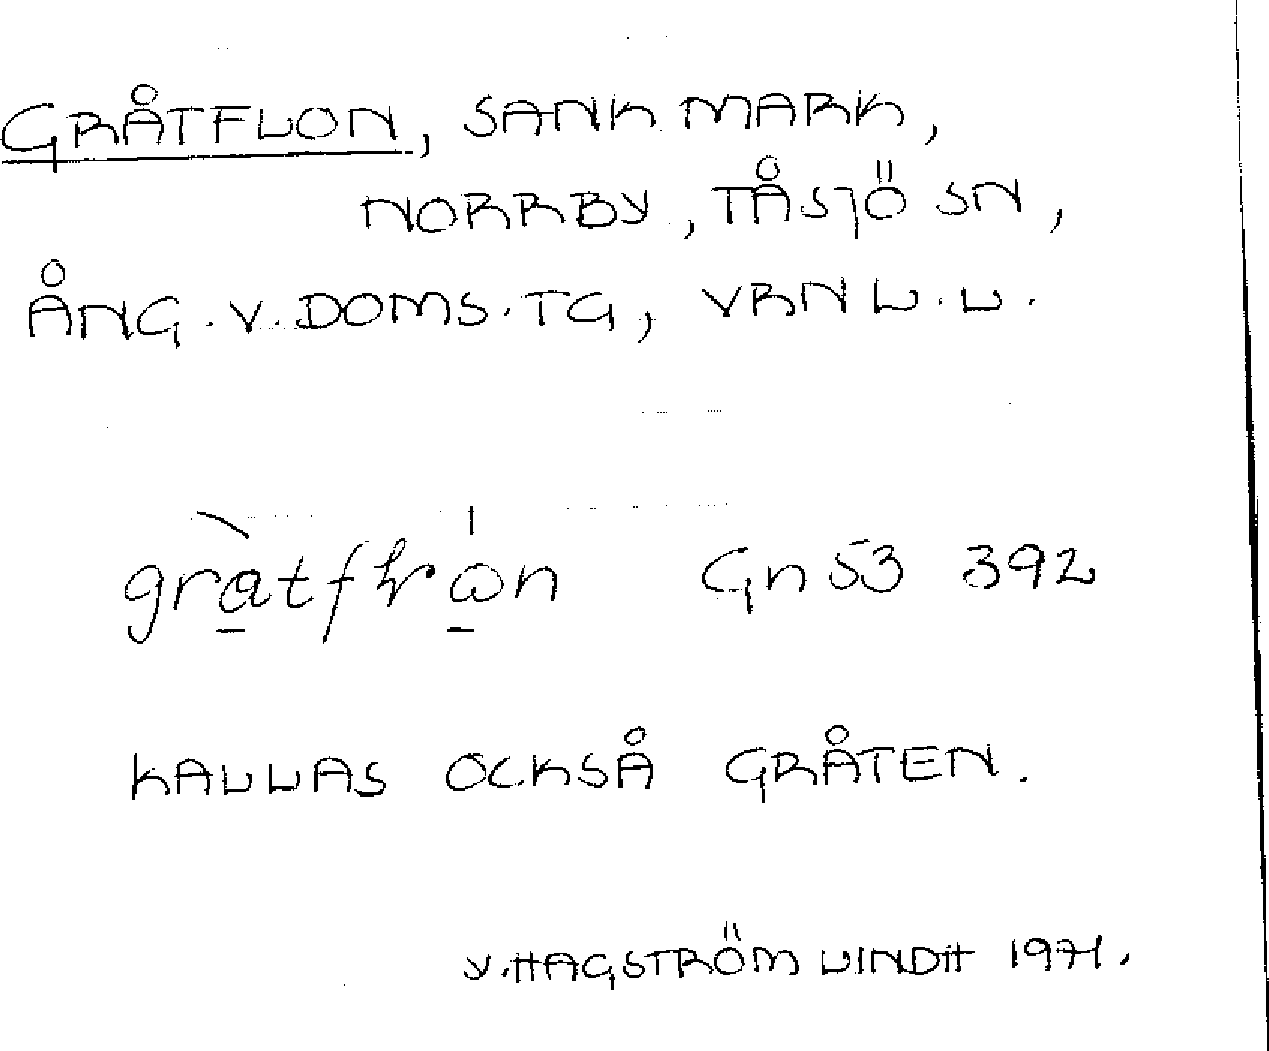 GRÅTFLON, SANK MARK,
NORRBY, TÅSJÖ SN,
ÅNG. V. DOMS. TG, VRNL.L.
Gn 53 392
KALLAS OCKSÅ GRÅTEN.
V. HAGSTRÖM LINDH 1971.